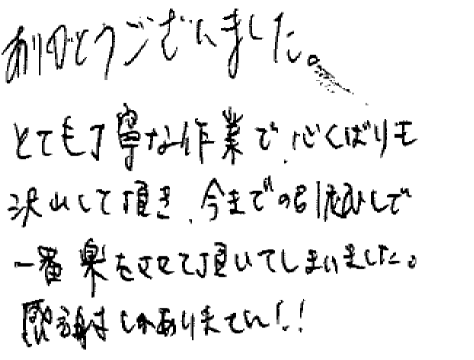 ありがとうございました。
とても丁寧な作業で、心くばりも
沢山して頂き、今までの引越しで
一番楽をさせて頂いてしまいました。
感謝しかありません!!